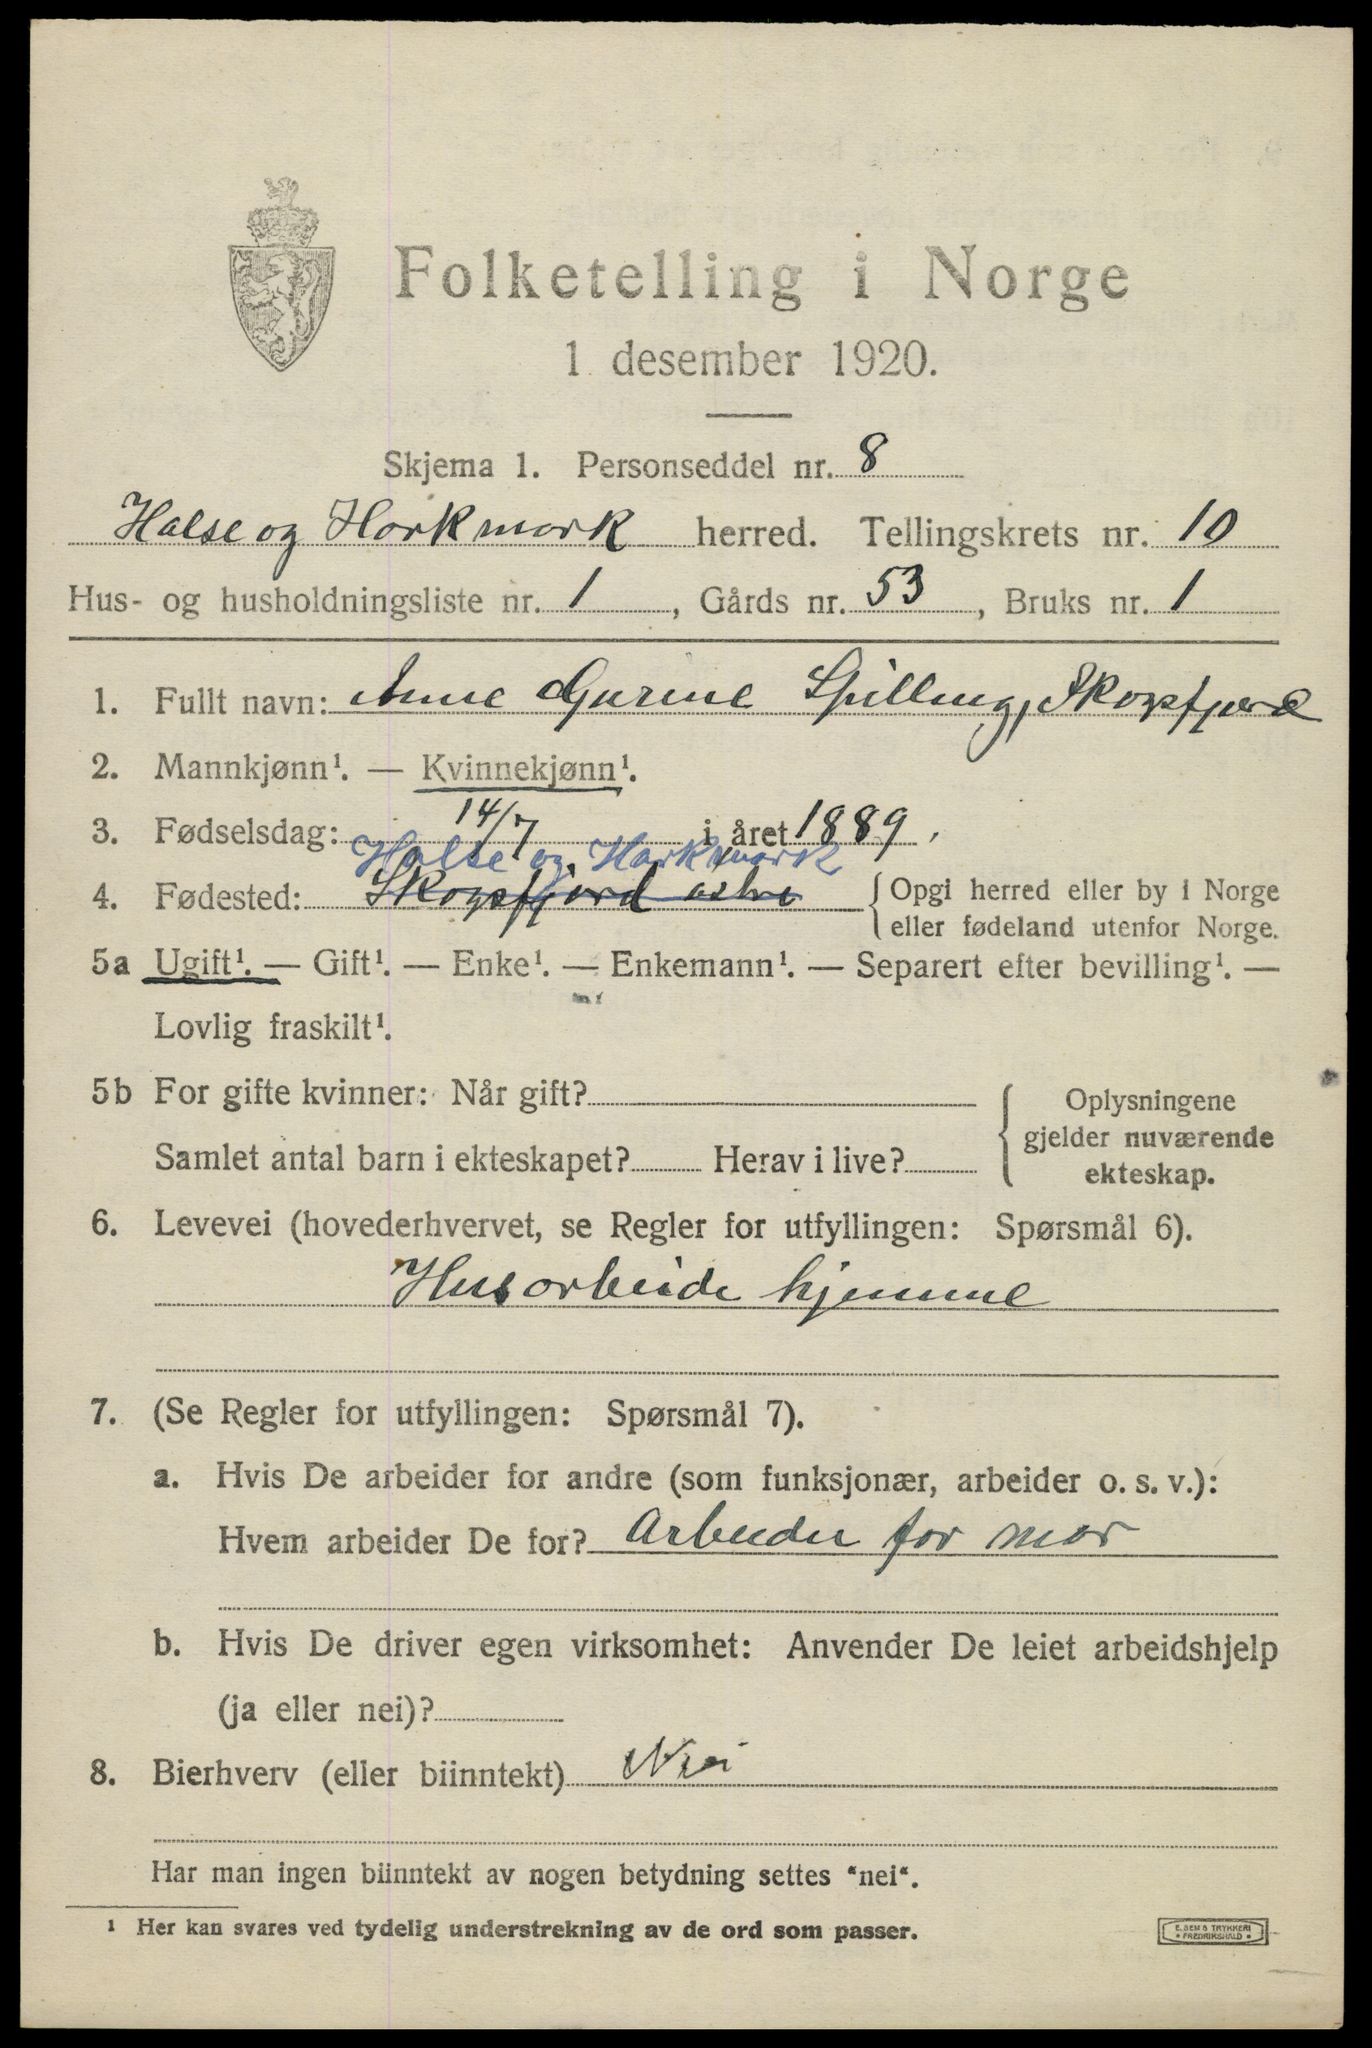 Folketelling i Norge
1 desember 1920.
Skjema 1. Personseddel nr. 8
Halse og Harkmark herred. Tellingskrets nr. 10
Hus- og husholdningsliste nr. 1, Gårds nr. 53, Bruks nr. 1
1. Fullt navn: Anne Gurine Spilling, Skogsfjord
2. Mannkjønn¹. — Kvinnekjønn¹.
3. Fødselsdag: 14/7 i året 1889.
Halse og Harkmark
4. Fødested: Skogsfjord østre {Opgi herred eller by i Norge
eller fødeland utenfor Norge.
5a Ugift¹. — Gift¹. — Enke¹. — Enkemann¹. — Separert efter bevilling¹. —
Lovlig fraskilt¹.
5b For gifte kvinner: Når gift?
Samlet antal barn i ekteskapet? Herav i live?
{Oplysningene
gjelder nuværende
ekteskap.
6. Levevei (hovederhvervet, se Regler for utfyllingen: Spørsmål 6).
Husarbeide hjemme
7. (Se Regler for utfyllingen: Spørsmål 7).
a. Hvis De arbeider for andre (som funksjonær, arbeider o. s. v.):
Hvem arbeider De for? Arbeider for mor
b. Hvis De driver egen virksomhet: Anvender De leiet arbeidshjelp
(ja eller nei)?
8. Bierhverv (eller biinntekt) Nei
Har man ingen biinntekt av nogen betydning settes "nei".
¹ Her kan svares ved tydelig understrekning av de ord som passer.
E. SEM'S TRYKKERI
FREDRIKSHALD